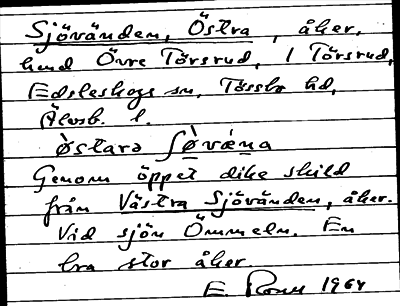 Sjövänden, Östra, åker.
hmd Övre Törsrud, 1 Törsrud,
Edsleskogs sn, Tössbo hd,
Älvsb. l.
östara ʃòvǽna
Genom öppet dike skild
från Västra Sjövänden, åker.
Vid sjön Ömmeln. En
bra stor åker.
E 1964